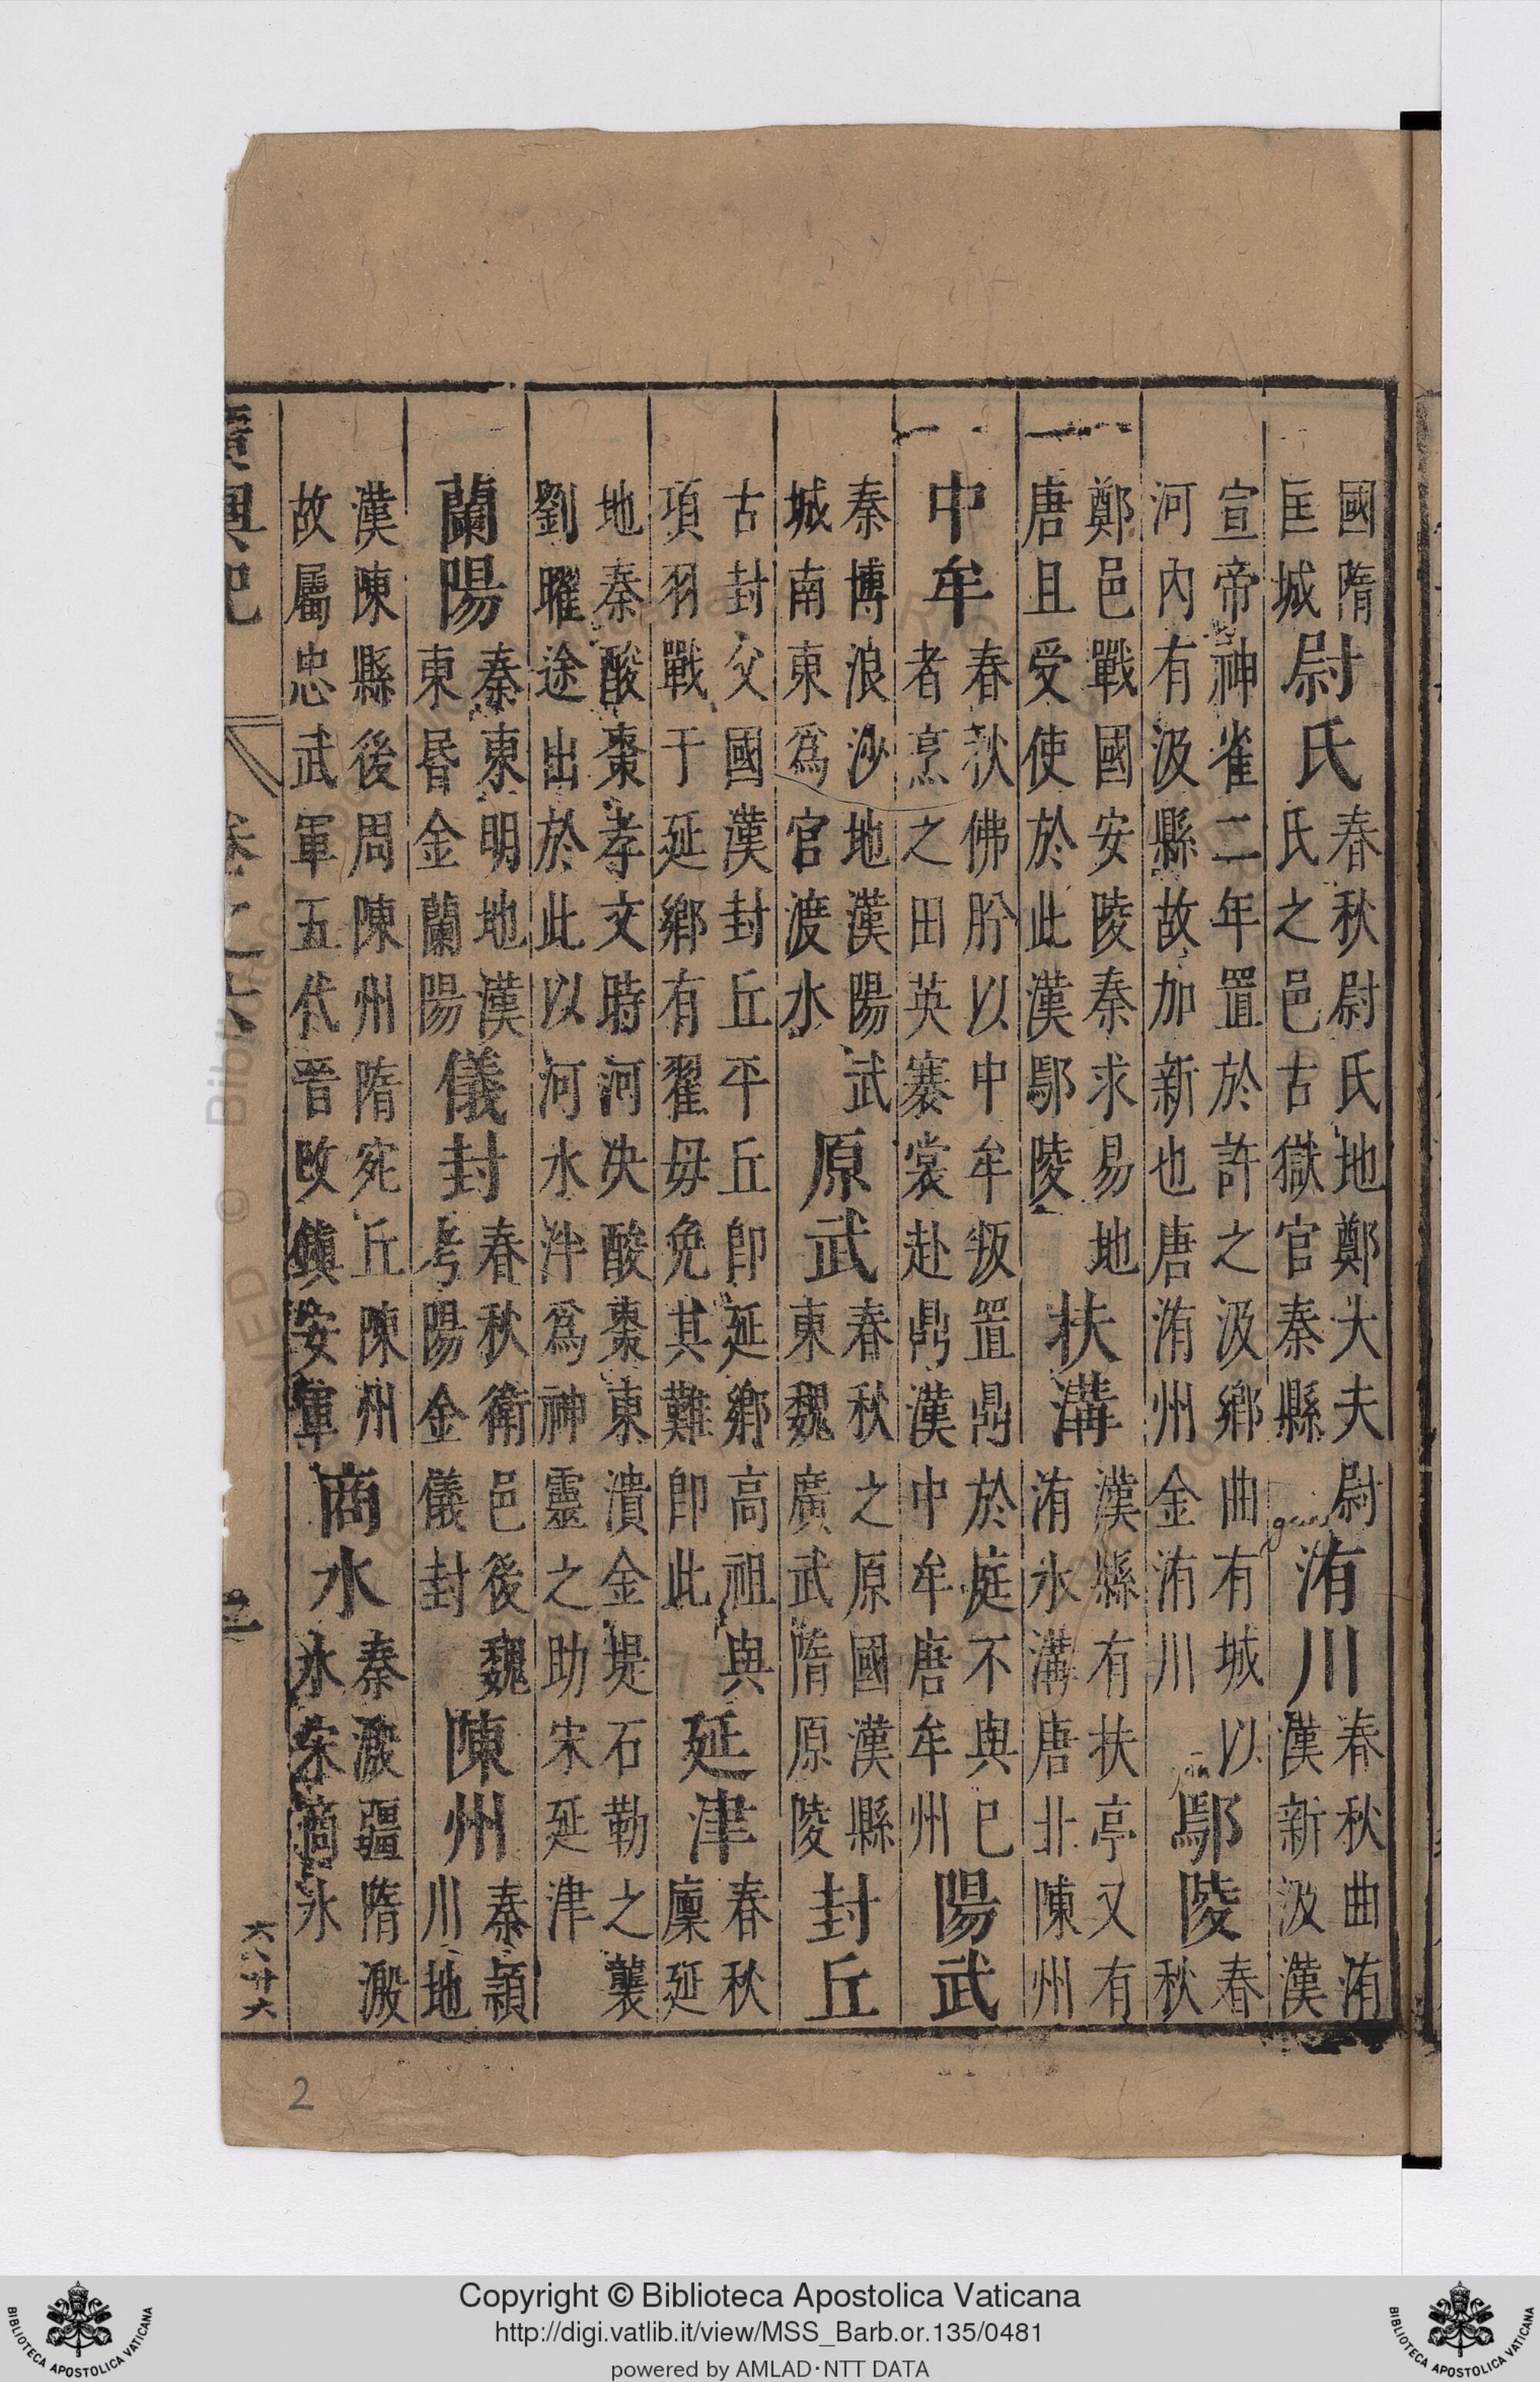 國隋匡城尉氏春秋尉氏地鄭大夫尉氏之邑古獄官秦縣洧川春秋曲洧漢新汲漢
宣帝神雀二年置於許之汲鄉曲有城以河內有汲縣故加新也唐洧州金洧川鄢陵春秋
鄭邑戰國安陵秦求易地唐且受使於此漢鄢陵扶溝漢縣有扶亭又有洧水溝唐北陳州
中牟春秋佛肸以中牟叛置鼎於庭不與已者烹之田英褰裳赴鼎漢中牟唐牟州陽武
秦博浪沙地漢陽武城南東爲官渡水原武春秋之原國漢縣東魏廣武隋原陵封丘
古封父國漢封丘平丘即延鄉高祖與項羽戰于延鄉有翟毋免其難即此延津春秋廩延
地秦酸棗孝文時河决酸棗東潰金堤石勒之襲劉曜途出於此以河水泮爲神靈之助宋延津
蘭陽秦東明地漢東昏金蘭陽儀封春秋衛邑後魏考陽金儀封陳州秦潁川地
漢陳縣後周陳州隋宛丘陳州故屬忠武軍五代晉改鎮安軍商水秦溵疆隋溵水宋商水
廣輿記 卷之六
六廿六
2
Copyright © Biblioteca Apostolica Vaticana
http://digi.vatlib.it/view/MSS_Barb.or.135/0481
powered by AMLAD·NTT DATA
BIBLIOTECA APOSTOLICA VATICANA
BIBLIOTECA APOSTOLICA VATICANA